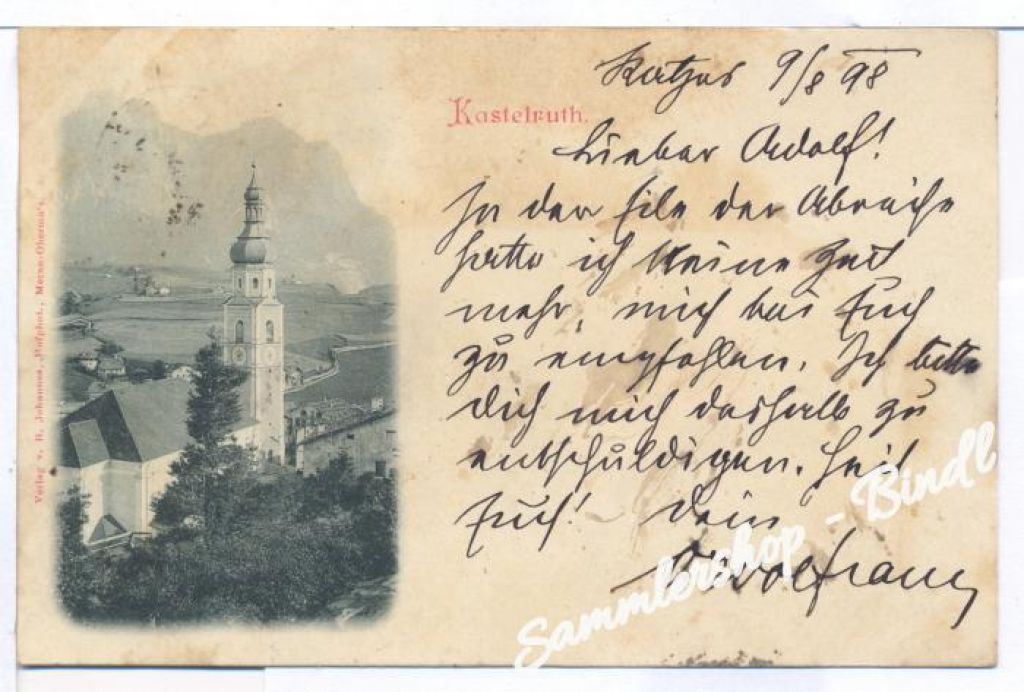 Ratzes 9/8 98
Kastelruth.
Lieber Adolf!
In der Eile der Abreise
hatte ich keine Zeit
mehr, mich bei Euch
zu empfehlen. Ich bitte
Dich mich deshalb zu
entschuldigen. Heil
Euch! Dein
Verlag v. B. Johannes, Hofphot., Meran-Obermais.
Sammlershop - Bindl